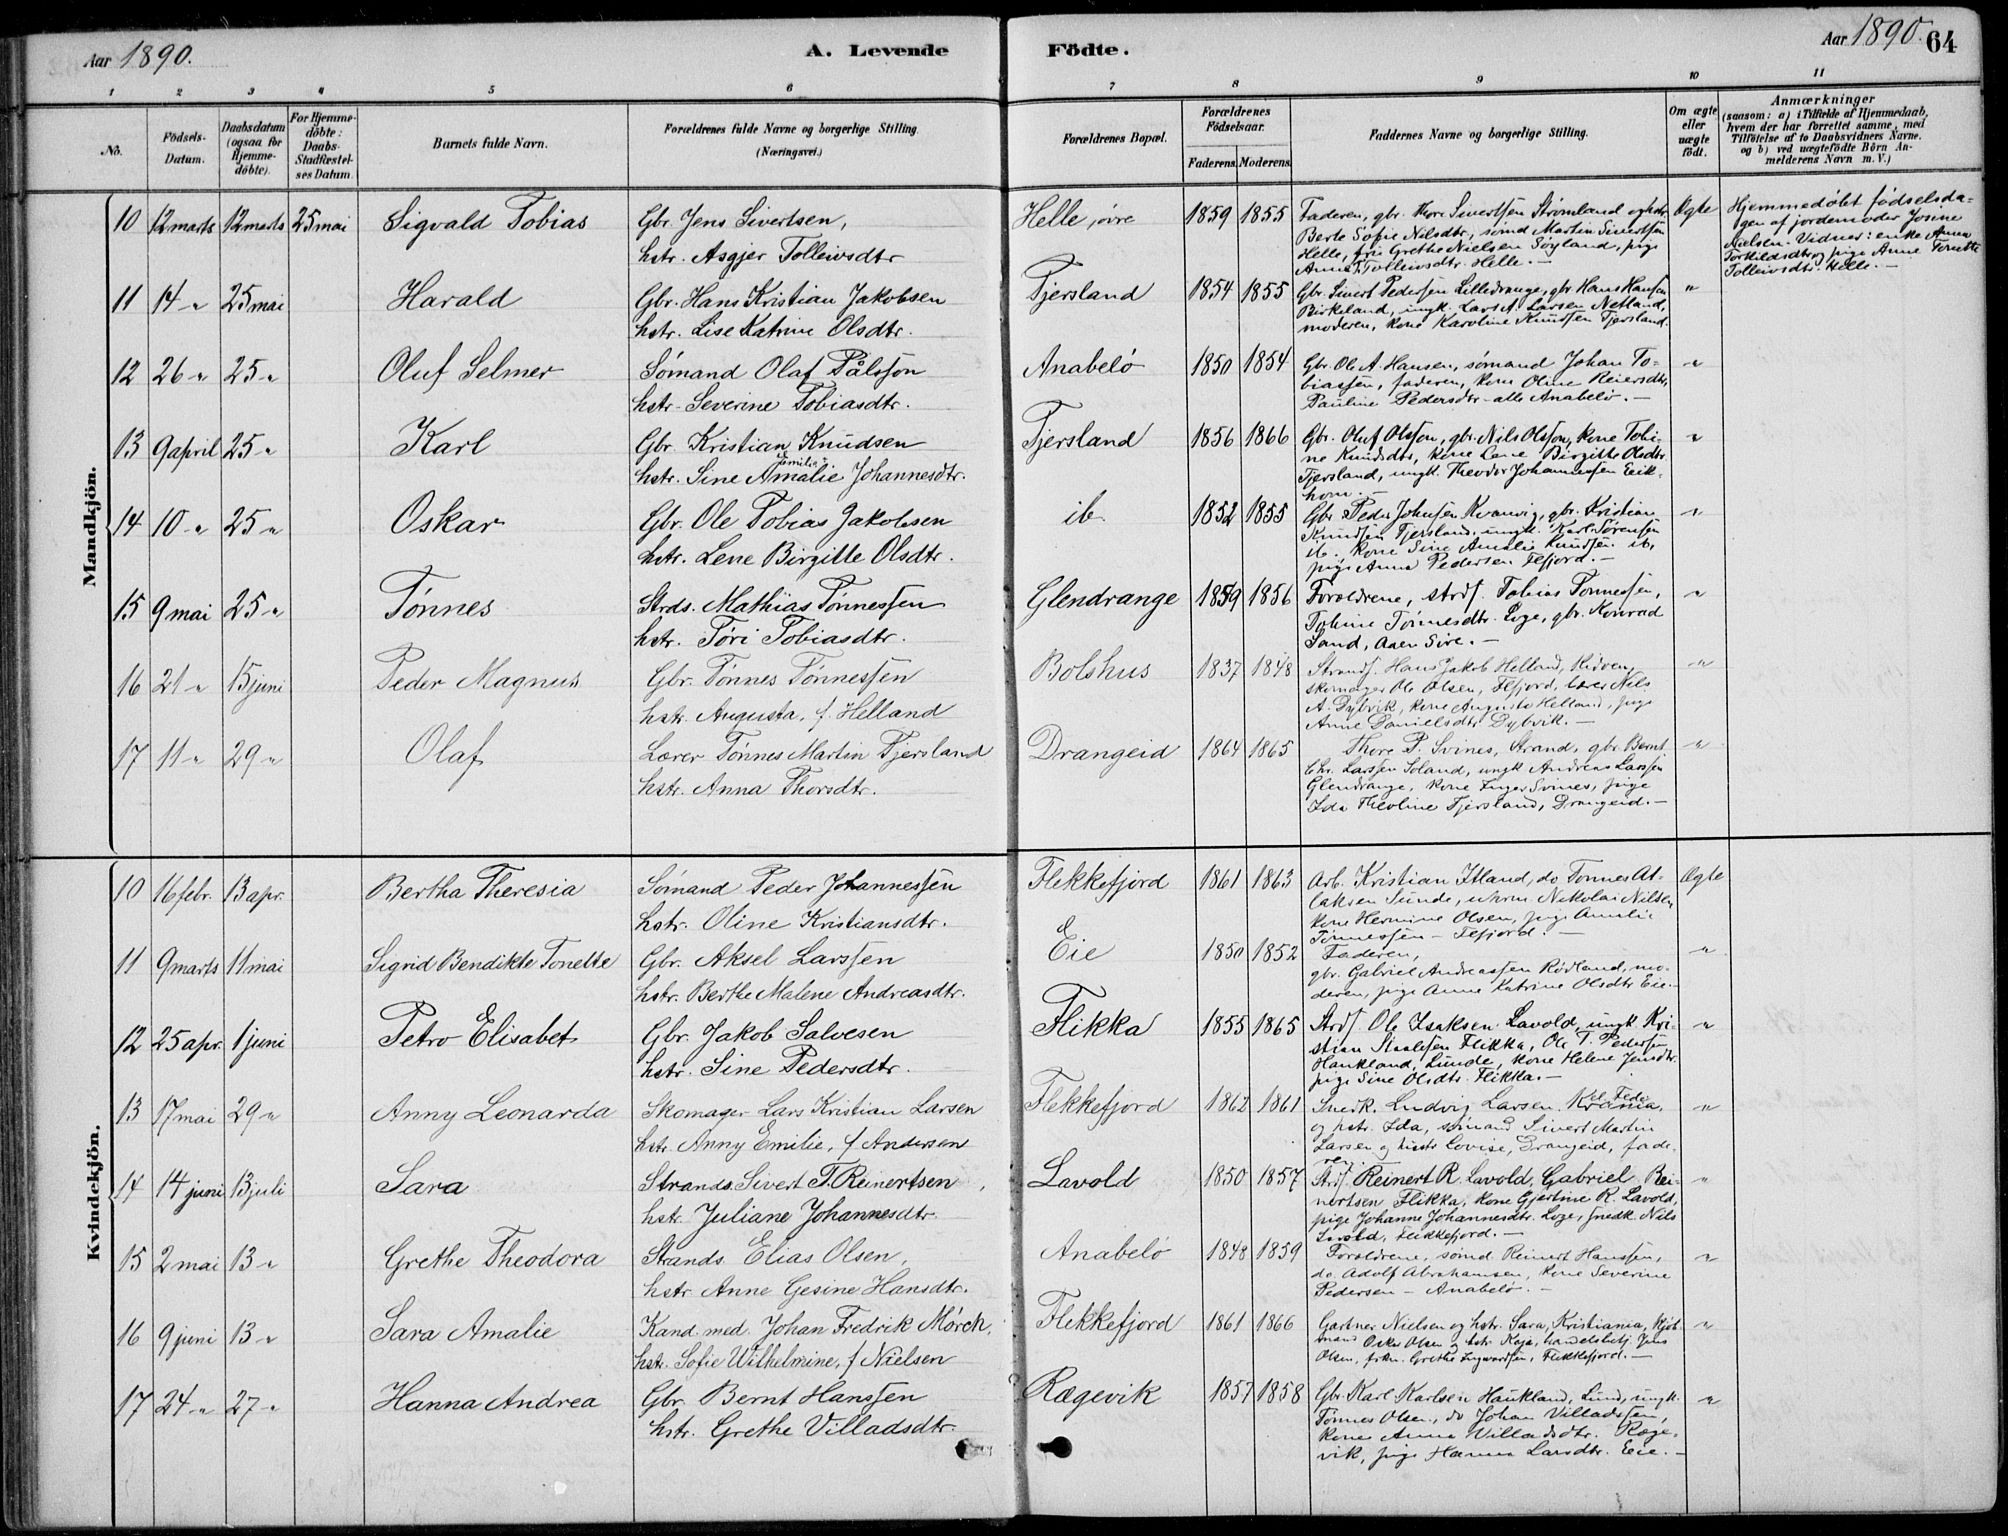 Aar 1890.
A. Levende Födte.
Aar 1890. 64
1 2 3 4 5 6 7 8 9 10 11
No.
Födsels-Datum.
Daabsdatum (ogsaa for Hjemme-döbte).
For Hjemme-döbte: Daabs-Stadfæstel-ses Datum.
Barnets fulde Navn.
Forældrenes fulde Navne og borgerlige Stilling. (Næringsvei.)
Forældrenes Bopæl.
Forældrenes Födselsaar.
Faderens. Moderens.
Faddernes Navne og borgerlige Stilling.
Om ægte eller uægte født.
Anmærkninger
(saasom: a) i Tilfælde af Hjemmedaab, hvem der har forrettet samme, med Tilföielse af to Daabsvidners Navne. og b) ved uægtefödte Börn An-melderens Navn m. V.)
Mandkjön.
10 12 marts 12 marts 25 mai Sigvald Tobias Gbr. Jens Sivertsen, Helle, övre 1859 1855 Faderen, gbr. Thore Sivertsen Strømland og hstr. Ægte Hjemmedøbt fødselsda-
hstr. Asgjer Tolleivsdtr Berte Sofie Nilsdtr., sømd Martin Sivertsen gen af jordemoder Josine
Helle, frk. Grethe Nielsen Søyland, pige Nielsen. Vidner: enke Anna
Anna T. Tolleivsdtr. Helle. — Torkildsdtr og pige Anne Tonette
Tolleivsdtr. Helle. —
11 14 " 25 mai Harald Gbr. Hans Kristian Jakobsen Tjersland 1854 1855 Gbr. Sivert Pedersen Lilledrange, gbr Hans Hansen "
hstr. Lise Katrine Olsdtr. Birkeland, ungk. Lars A. Larsen Netland,
moderen, kone Karoline Knudsen Tjersland.
12 26 " 25 " Oluf Selmer Sømand Olaf Pålsson Anabelø 1850 1854 Gbr. Ole A. Hansen, sømand Johan To- "
hstr. Severine Tobiasdtr. biassen, faderen, kone Oline Reiersdtr,
Pauline Pedersdtr - alle Anabelø. —
13 9 april 25 " Karl Gbr. Kristian Knudsen Tjersland 1856 1866 Gbr. Oluf Olsson, gbr. Nils Olsson, kone Tobi- "
hstr. Sine Amalie Johannesdtr. ne Knudsdtr, kone Lene Birgitte Olsdtr
Tjersland, ungk. Theodor Johannessen Eik-
hom. —
14 10 " 25 " Oskar Gbr. Ole Tobias Jakobsen ib 1852 1855 Gbr Peder Johnsen Kvanvig, gbr. Kristian "
hstr. Lene Birgitte Olsdtr. Knudsen Tjersland, ungk. Karl Sørensen
ib. kone Sine Amalie Knudsen ib,
pige Anna Pedersen Ffjord. —
15 9 mai 25 " Tønnes Strds. Mathias Tønnessen Glendrange 1859 1856 Forældrene, strds. Tobias Tønnessen, "
hstr. Tøri Tobiasdtr. Tønnesdtr. Loge, gbr. Konrad
Sand, Aaen Sire. —
16 21 " 15 juni Peder Magnus Gbr. Tønnes Tønnessen Bolshus 1837 1848 Strands. Hans Jakob Helland, "
hstr. Augusta, f. Helland skomager Ole Olsen, Ffjord, lærer Nils
A. Dybvik, kone Augusta Helland, pige
Anne Danielsdtr. Dybvik. —
17 11 " 29 " Olaf Lærer Tønnes Martin Tjersland Drangeid 1864 1865 Thore P. Svines, Strand, gbr. Bernt "
hstr. Anna Thorsdtr. Chr. Larssen Soland, ungk Andreas Larssen
Glendrange, kone Inger Svines, pige
Ida Theoline Tjersland, Drangeid. —
Kvindekjön.
10 16 febr. 13 apr. Bertha Theresia Sømand Peder Johannessen Flekkefjord 1861 1863 Arb. Kristian Itland, do Tønnes At- Ægte
hstr. Oline Kristiansdtr. laksen Sunde, uhrm. Nikolai Nilsen
kone Hermine Olsen, pige Amalie
Tønnessen - Ffjord. —
11 9 marts 11 mai Sigrid Bendikte Tonette Gbr. Aksel Larssen Eie 1850 1852 Faderen, "
hstr. Berthe Malene Andreasdtr. gbr. Gabriel Andreassen Rødland, mo-
deren, pige Anne Katrine Olsdtr Eie. —
12 25 apr. 1 juni Petro Elisabet Gbr. Jakob Salvesen Flikka 1855 1865 Strds. Ole Isaksen Lavold, ungk Kri- "
hstr. Sine Pedersdtr. stian Staalesen Flikka, Ole T. Pedersen
Haukland, Lunde, kone Helene Jensdtr.
pige Sine Olsdtr. Flikka. —
13 17 mai 29 " Anny Leonarda Skomager Lars Kristian Larsen Flekkefjord 1862 1861 Snedk. Ludvig Larsen, Kvania, Fede "
hstr. Anny Emilie, f Andersen og hstr. Ida, sømand Sivert Martin
Larsen og hustr Lovise, Drangeid, fade-
ren.
14 14 juni 13 juli Sara Strands. Sivert T. Reinertsen Lavold 1850 1857 Strds. Reinert R. Lavold, Gabriel Rei- "
hstr. Juliane Johannesdtr. nertsen Flikka, kone Gjertine R. Lavold,
pige Johanne Johannesdtr. Loge, snedk. Nils
Flekkefjord. —
15 2 mai 13 " Grethe Theodora Strands. Elias Olsen, Anabelø 1848 1859 Forældrene, sømd Reinert Hanssen, "
hstr. Anne Gesine Hansdtr. do. Adolf Abrahamsen, kone Severine
Pedersen - Anabelø. —
16 9 juni 13 " Sara Amalie Kand. med. Johan Fredrik Mørch, Flekkefjord 1861 1866 Gartner Nielsen og hstr. Sara, Kristiania, kjøb- "
hstr. Sofie Wilhelmine, f Nielsen mand Oskar Olsen og hstr. Kaja, handelsbetj. Jens
Olsen, frkn. Grethe Ingwardsen, Flekkefjord. —
17 24 " 27 " Hanna Andrea Gbr. Bernt Hanssen Rægevik 1857 1858 Gbr Karl Karlsen Haukland, Lund, ungk. "
hstr. Grethe Villadsdtr. Tønnes Olsen, do Johan Villadssen,
kone Anna Villadsdtr. Ræge-
vik, pige Hanna Larsdtr. Eie. —